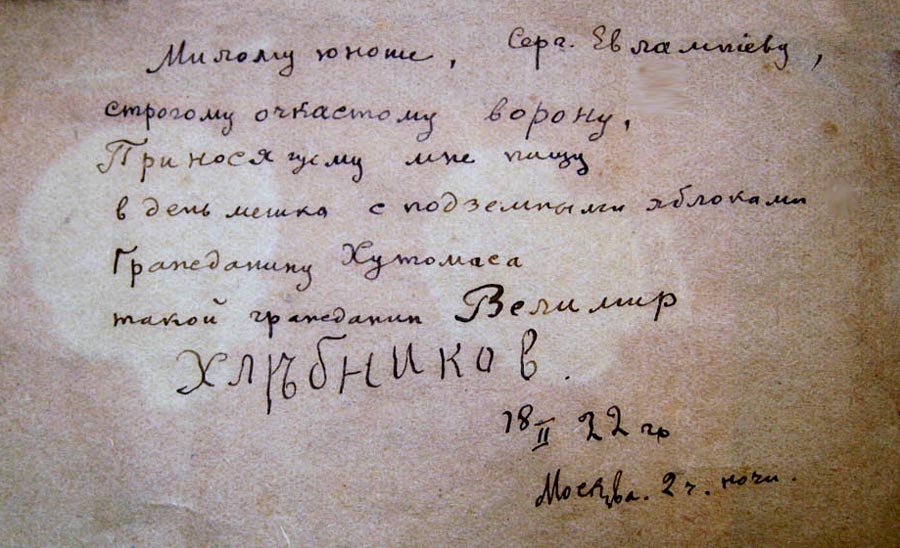 Милому юноше, Серг. Евлампіеву,
строгому очкастому ворону,
Приносящему мне пищу
в день мешка с подземными яблоками
Гражданину Хутомаса
такой гражданин Велимир
Хлѣбников.
18/II 22 г.
Москва. 2 ч. ночи.